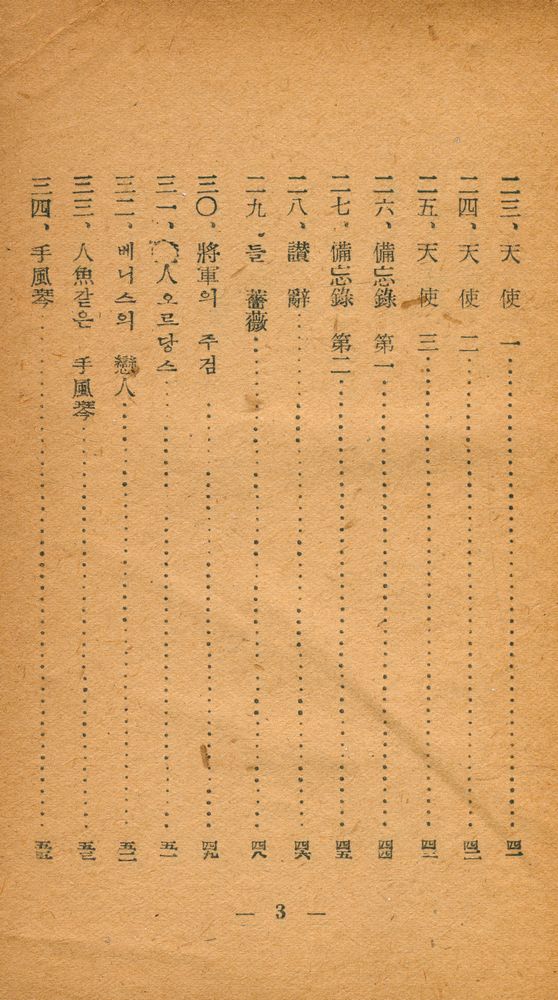 二三、天使 一 四一
二四、天使 二 四二
二五、天使 三 四三
二六、備忘錄 第一 四四
二七、備忘錄 第二 四五
二八、讚辭 四六
二九、들 薔薇 四八
三〇、將軍의 주검 四九
三一、人오르당스 五一
三二、베니스의 戀人 五二
三三、人魚같은 手風琴 五三
三四、手風琴
— 3 —